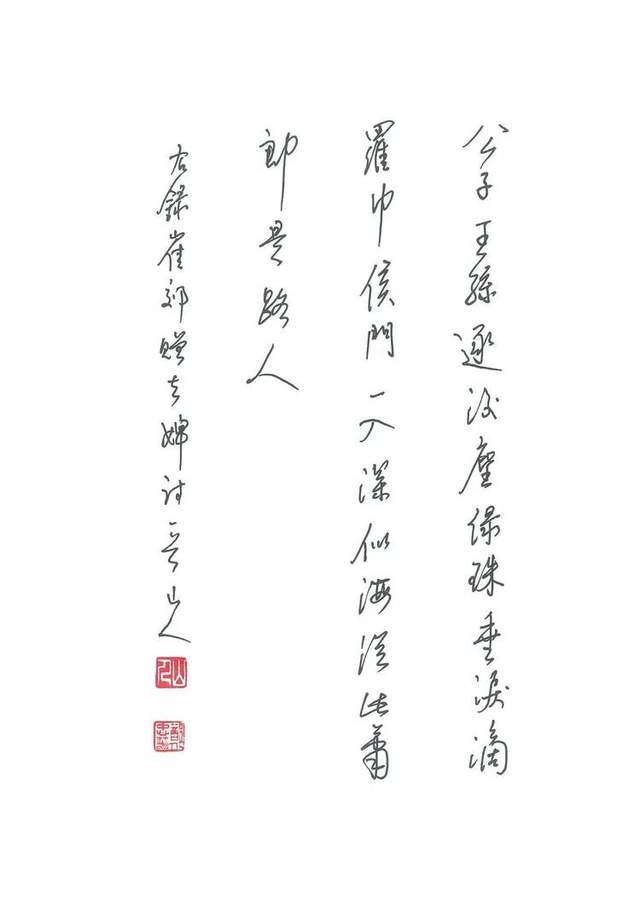 公子王孫逐後塵綠珠垂淚滴
羅巾侯門一入深似海從此蕭
郎是路人
右錄崔郊贈去婢詩 山人
山人